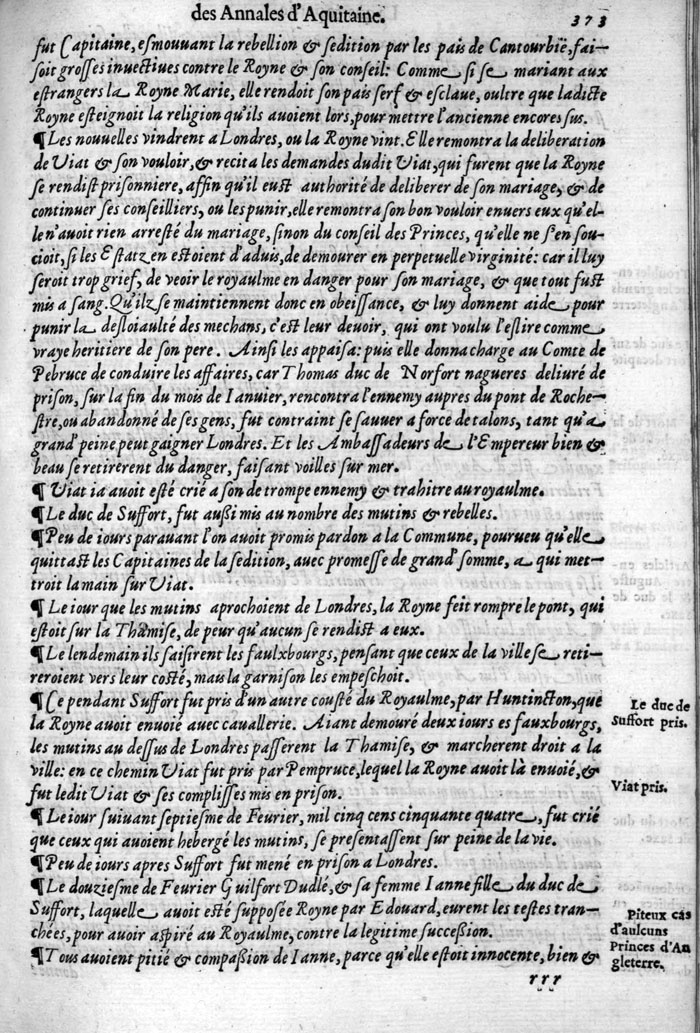 des Annales d'Aquitaine. 373
fut Capitaine, esmouuant la rebellion & sedition par les païs de Cantourbie, fai-
soit grosses inuectiues contre le Royne & son conseil: Comme si se mariant aux
estrangers la Royne Marie, elle rendoit son païs serf & esclaue, oultre que ladicte
Royne esteignoit la religion qu'ils auoient lors, pour mettre l'ancienne encores sus.
¶ Les nouuelles vindrent a Londres, ou la Royne vint. Elle remontra la deliberation
de Uiat & son vouloir, & recita les demandes dudit Uiat, qui furent que la Royne
se rendist prisonniere, affin qu'il eust authorité de deliberer de son mariage, & de
continuer ses conseilliers, ou les punir, elle remontra son bon vouloir enuers eux qu'el-
le n'auoit rien arresté du mariage, sinon du conseil des Princes, qu'elle ne s'en sou-
cioit, si les Estatz en estoient d'aduis, de demourer en perpetuelle virginité: car il luy
seroit trop grief, de veoir le royaulme en danger pour son mariage, & que tout fust
mis a sang. Qu'ilz se maintiennent donc en obeissance, & luy donnent aide pour
punir la desloiaulté des mechans, c'est leur deuoir, qui ont voulu l'eslire comme
vraye heritiere de son pere. Ainsi les appaisa: puis elle donna charge au Comte de
Pebruce de conduire les affaires, car Thomas duc de Norfort nagueres deliuré de
prison, sur la fin du mois de Ianuier, rencontra l'ennemy aupres du pont de Roche-
stre, ou abandonné de ses gens, fut contraint se sauuer a force de talons, tant qu'a
grand' peine peut gaigner Londres. Et les Ambassadeurs de l'Empereur bien &
beau se retirerent du danger, faisant voilles sur mer.
¶ Uiat ia auoit esté crié a son de trompe ennemy & trahitre au royaulme.
¶ Le duc de Suffort, fut außi mis au nombre des mutins & rebelles.
¶ Peu de iours parauant l'on auoit promis pardon a la Commune, pourueu qu'elle
quittast les Capitaines de la sedition, auec promesse de grand' somme, a qui met-
troit la main sur Uiat.
¶ Le iour que les mutins aprochoient de Londres, la Royne feit rompre le pont, qui
estoit sur la Thamise, de peur qu'aucun se rendist a eux.
¶ Le lendemain ils saisirent les faulxbourgs, pensant que ceux de la ville se reti-
reroient vers leur costé, mais la garnison les empeschoit.
¶ Ce pendant Suffort fut pris d'un autre cousté du Royaulme, par Huntincton, que
la Royne auoit enuoié auec cauallerie. Aiant demouré deux iours es fauxbourgs,
les mutins au dessus de Londres passerent la Thamise, & marcherent droit a la
ville: en ce chemin Uiat fut pris par Pempruce, lequel la Royne auoit là enuoié, &
fut ledit Uiat & ses complisses mis en prison.
¶ Le iour suiuant septiesme de Feurier, mil cinq cens cinquante quatre, fut crié
que ceux qui auoient hebergé les mutins, se presentassent sur peine de la vie.
¶ Peu de iours apres Suffort fut mené en prison a Londres.
¶ Le douziesme de Feurier Guilfort Dudlé, & sa femme Ianne fille du duc de
Suffort, laquelle auoit esté supposée Royne par Edouard, eurent les testes tran-
chées, pour auoir aspiré au Royaulme, contre la legitime succeßion.
¶ Tous auoient pitié & compaßion de Ianne, parce qu'elle estoit innocente, bien &
rrr
Le duc de
Suffort pris.
Viat pris.
Piteux cas
d'aulcuns
Princes d'An
gleterre.